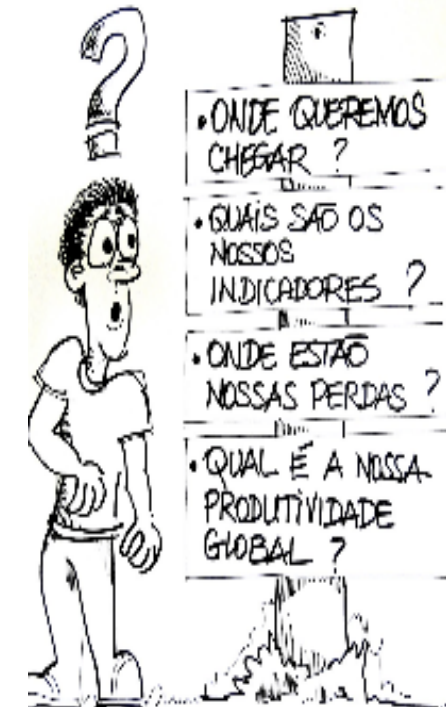 ?
• ONDE QUEREMOS
CHEGAR ?
• QUAIS SÃO OS
NOSSOS
INDICADORES ?
• ONDE ESTÃO
NOSSAS PERDAS ?
• QUAL É A NOSSA
PRODUTIVIDADE
GLOBAL ?